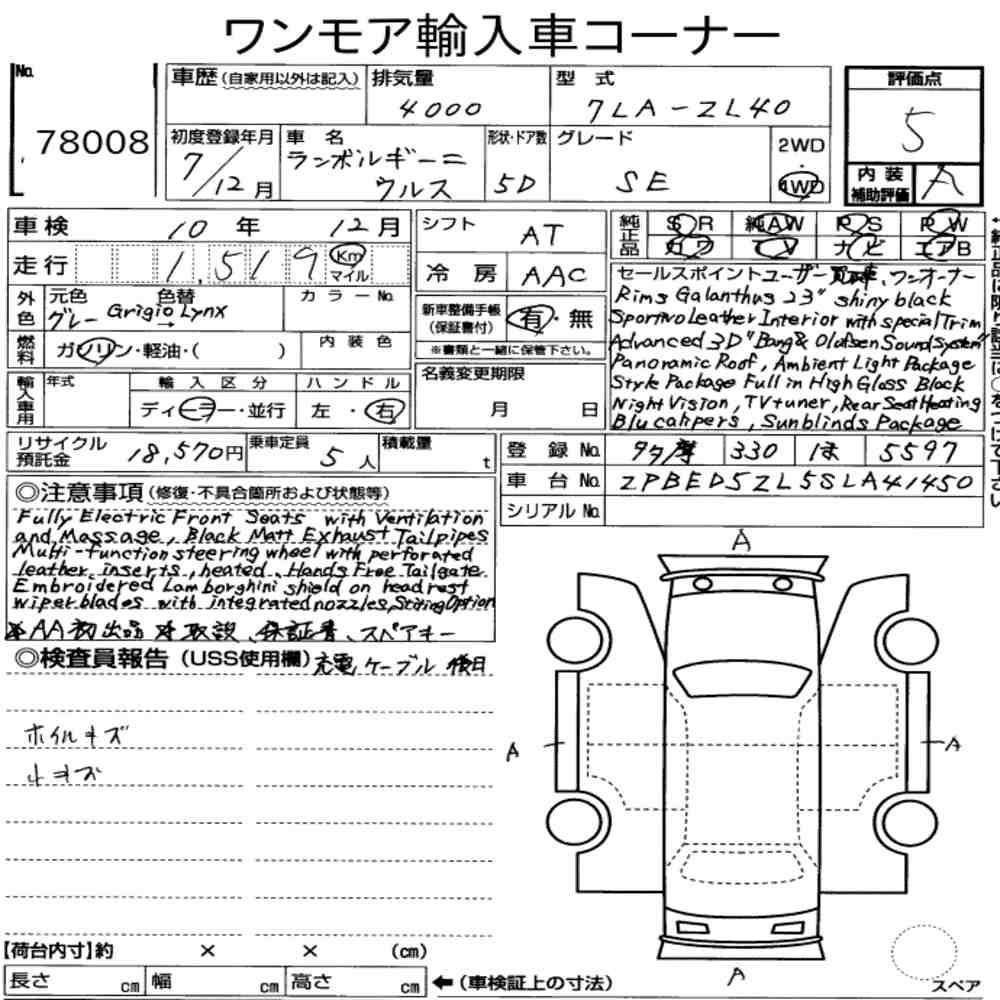 ワンモア輸入車コーナー
No.
78008
車歴 (自家用以外は記入)
排気量
4000
型式
7LA-ZL40
評価点
5
初度登録年月
7/12月
車名
ランボルギーニ
ウルス
形状・ドア数
5D
グレード
SE
2WD
・
4WD
内装
補助評価
A
車検 10年 12月
シフト
AT
純正品
SR 純AW PS PW
カワ TV ナビ エアB
走行 1,519 Km
マイル
冷房 AAC
セールスポイント ユーザー買確、ワンオーナー
Rims Galanthus 23" shiny black
Sportivo Leather Interior with special Trim
Advanced 3D "Bang & Olufsen Sound System"
Panoramic Roof, Ambient Light Package
Style Package Full in High Gloss Black
Night Vision, TV tuner, Rear Seat Heating
Blu calipers, Sunblinds Package
外色
元色
グレー
色替
Grigio Lynx
→
カラーNo.
新車整備手帳
(保証書付)
有・無
※書類と一緒に保管下さい。
燃料
ガソリン・軽油・( )
内装色
名義変更期限
月 日
輸入車用
年式
輸入区分
ディーラー・並行
ハンドル
左・右
リサイクル
預託金
18,570円
乗車定員
5人
積載量
t
登録No. 多摩 330 ほ 5597
車台No. ZPBED5ZL5SLA41450
シリアルNo.
◎注意事項 (修復・不具合箇所および状態等)
Fully Electric Front Seats with Ventilation
and Massage, Black Matt Exhaust Tailpipes
Multi-function steering wheel with perforated
leather inserts, heated, Hands Free Tailgate
Embroidered Lamborghini shield on headrest
wiper blades with integrated nozzles,
※AA初出品 ※取説、保証書、スペアキー
充電ケーブル 後日
◎検査員報告 (USS使用欄)
ホイルキズ
小キズ
A
A
A
A
【荷台内寸】約 × × (cm)
長さ cm 幅 cm 高さ cm
←(車検証上の寸法)
スペア